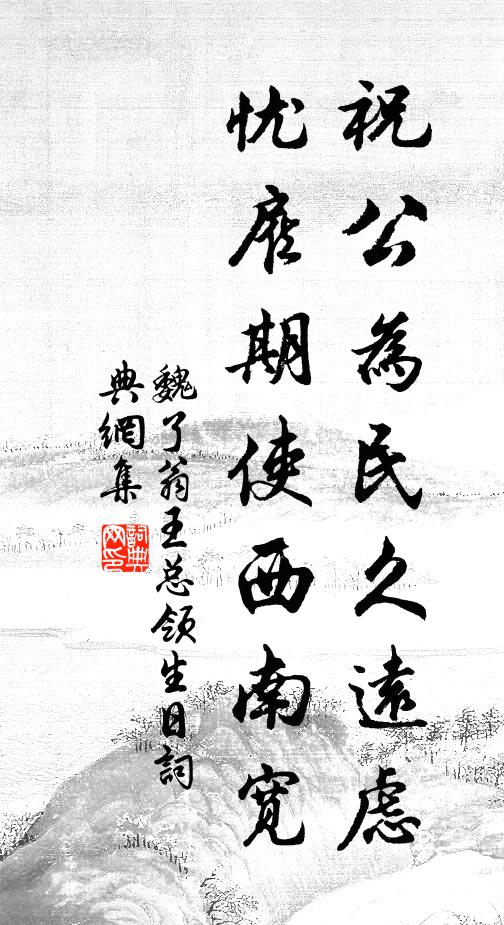 祝公為民久遠慮
忧庶期使西南寬
魏了翁王总领生日詞
典網集
詞典
网印